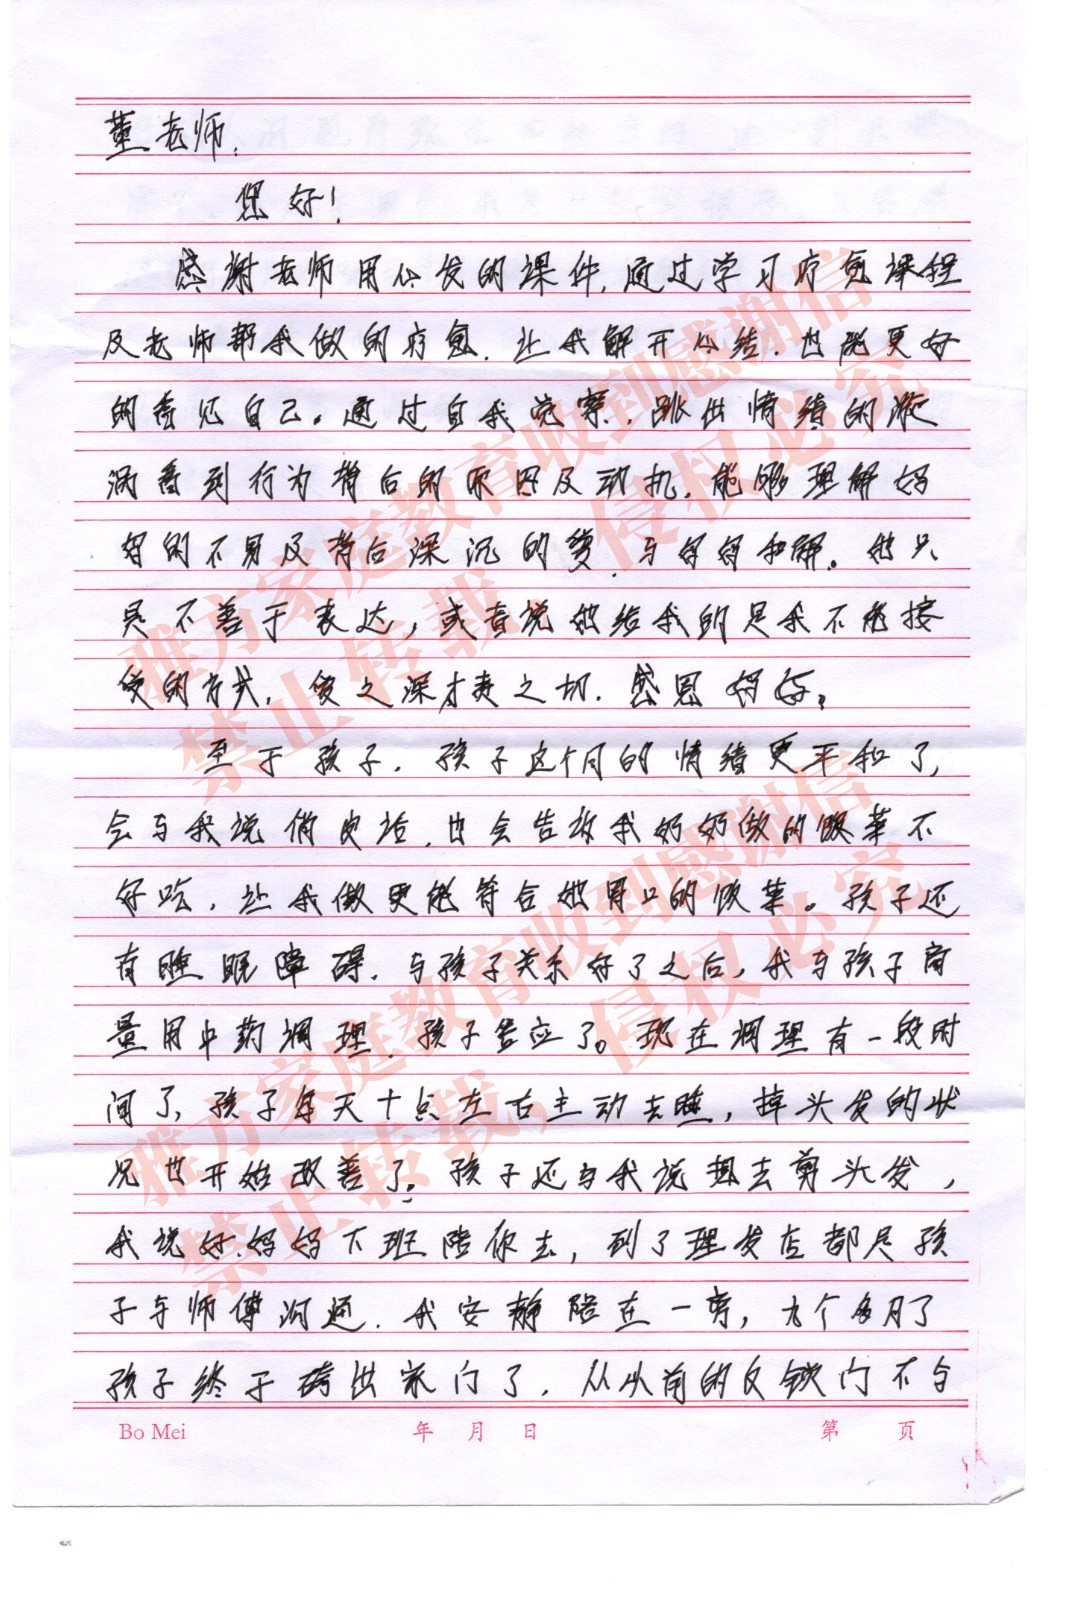 董老师:
您好!
感谢老师用心发的课件,通过学习疗愈课程
及老师帮我做的疗愈,让我解开心结,也能更好
的看见自己。通过自我觉察,跳出情绪的漩
涡看到行为背后的原因及动机,能够理解妈
妈的不易及背后深沉的爱,与妈妈和解。她只
是不善于表达,或者说她给我的是我不能接
受的方式,爱之深才责之切,感恩妈妈。
至于孩子,孩子这个月的情绪更平和了,
会与我说俏皮话,也会告诉我奶奶做的饭菜不
好吃,让我做更能符合她胃口的饭菜。孩子还
有睡眠障碍,与孩子关系好了之后,我与孩子商
量用中药调理,孩子答应了。现在调理有一段时
间了,孩子每天十点左右主动去睡,掉头发的状
况也开始改善了。孩子还与我说想去剪头发,
我说好,妈妈下班陪你去,到了理发店都是孩
子与师傅沟通,我安静陪在一旁,九个多月了
孩子终于跨出家门了,从以前的反锁门不与
Bo Mei 年 月 日 第 页
雅方家庭教育收到感谢信
禁止转载,侵权必究
雅方家庭教育收到感谢信
禁止转载,侵权必究